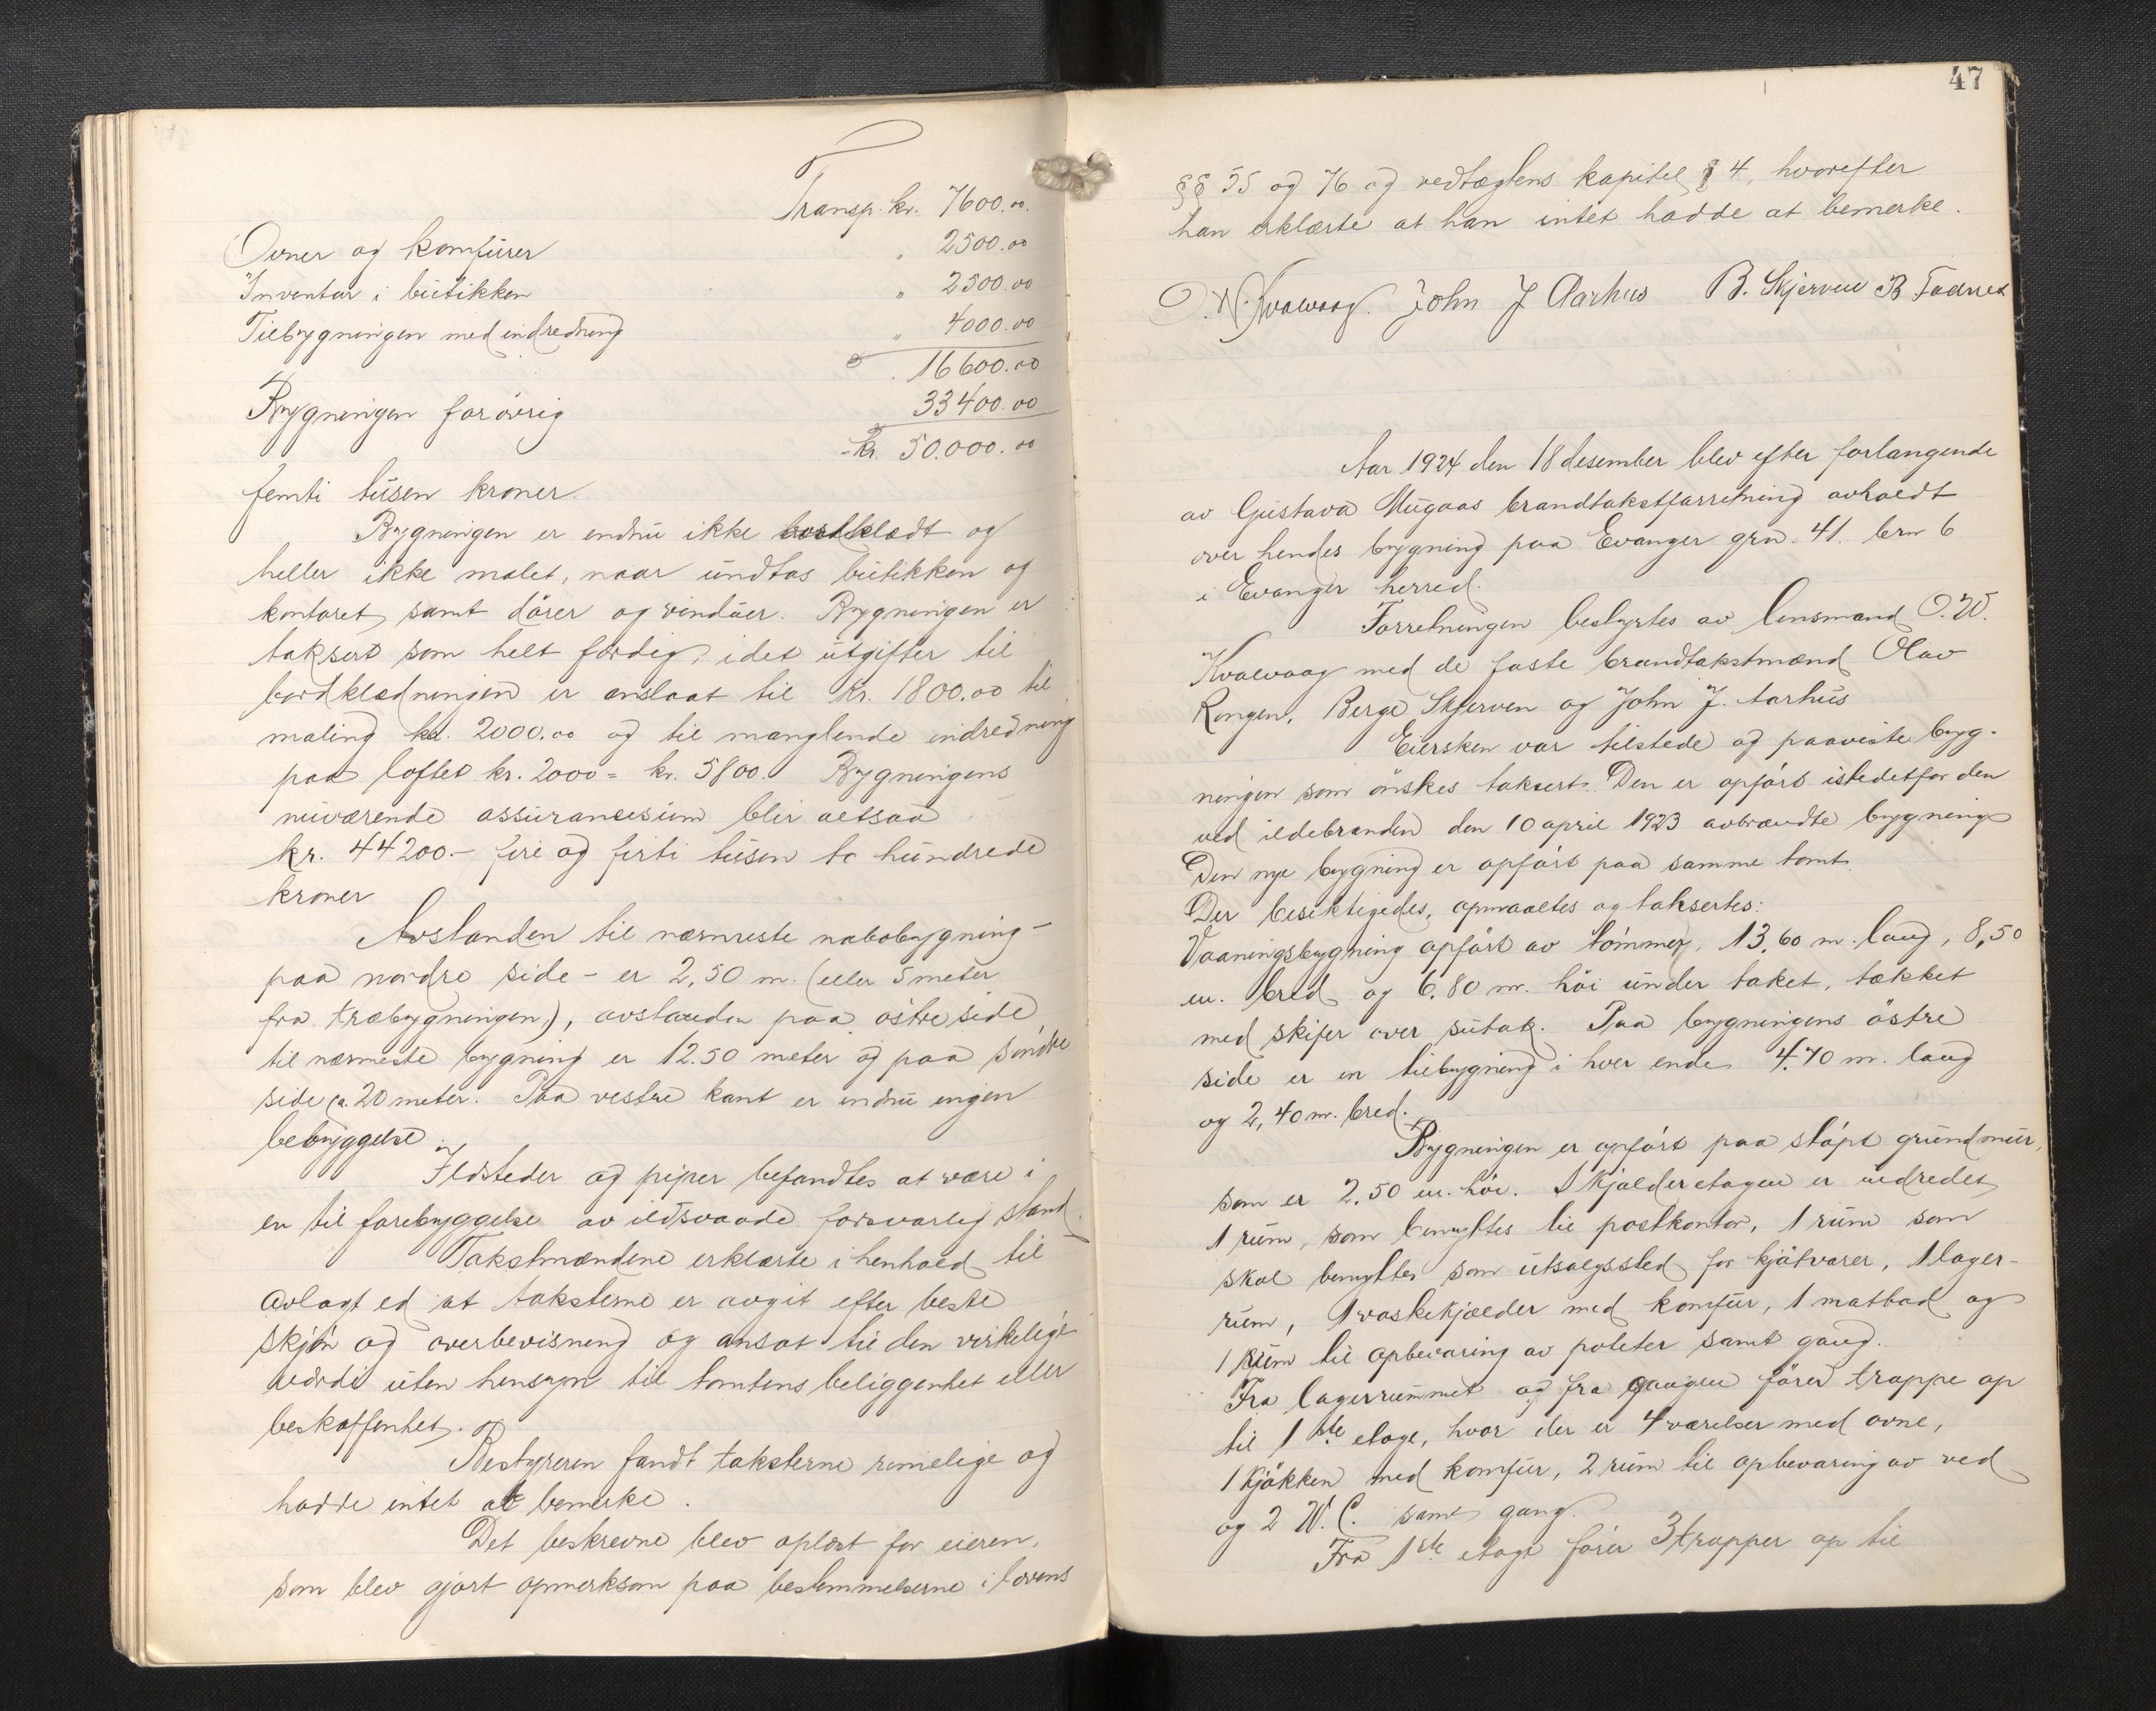 Transp. kr. 7600.00.
Ovner og komfürer " 2500.00
Inventar i bütikken " 2500.00
Tilbygningen med indredning " 4000.00
16600.00
Bygningen forövrig 33400.00
kr. 50.000.00
femti tüsen kroner.
Bygningen er endnü ikke bordklædt og
heller ikke malet, naar ündtas bütikken og
kontoret, samt dörer og vindüer. Bygningen er
taksert som helt færdig, idet ütgifter til
bordklædningen er anslaat til kr. 1800.00 til
maling kr. 2000.00 og til manglende indredning
paa loftet kr. 2000 = kr. 5800. Bygningens
nüværende assüransesüm blir altsaa
kr. 44200.- fire og firti tüsen to hündrede
kroner
Avstanden til nærmeste nabobygning -
paa nordre side - er 2,50 m. (eller 5 meter
fra træbygningen), avstanden paa östre side
til nærmeste bygning er 12.50 meter og paa söndre
side ca. 20 meter. Paa vestre kant er endnü ingen
bebyggelse.
Ildsteder og piper befandtes at være i
en til forebyggelse av ildsvaade forsvarlig stand.
Takstmændene erklærte i henhold til
avlagt ed at taksterne er avgit efter beste
skjön og overbevisning og ansat til den virkelige
værdi üten hensyn til tomtens beliggenhet eller
beskaffenhet.
Bestyreren fandt taksterne rimelige og
hadde intet at bemerke.
Det beskrevne blev oplæst for eieren,
som blev gjort opmerksom paa bestemmelserne i lovens
47
§§ 55 og 76 og vedtægtens kapitel § 4, hvorefter
han erklærte at han intet hadde at bemerke.
O. W. Kvalvaag. John J Aarhus B. Skjerven B Fadnes
Aar 1924 den 18 desember blev efter forlangende
av Güstava Mügaas brandtakstforretning avholdt
over hendes bygning paa Evanger grn. 41. brn 6
i Evanger herred.
Forretningen bestyrtes av lensmand O. W.
Kvalvaag med de faste brandtakstmænd Olav
Rongen, Berge Skjerven og John J. Aarhüs
Eiersken var tilstede og paaviste byg-
ningen som önskes taksert. Den er opfört istedetfor den
ved ildebranden den 10 april 1923 avbrændte bygning
Den nye bygning er opfört paa samme tomt.
Der besiktigedes, opmaaltes og taksertes:
Vaaningsbygning opfört av tömmer, 13,60 m. lang, 8,50
m. bred og 6,80 m. höi ünder taket, tækket
med skifer over sütak. Paa bygningens östre
side er en tilbygning i hver ende 4,70 m. lang
og 2,40 m. bred.
Bygningen er opfört paa stöpt gründmür,
som er 2,50 m. höi. I kjælderetagen er indredet
1 rüm, som benyttes til postkontor, 1 rüm som
skal benyttes som ütsalgssted for kjötvarer, 1 lager-
rüm, 1 vaskekjælder med komfür, 1 matbod og
1 rüm til opbevaring av poteter samt gang.
Fra lagerrummet og fra gangen förer trappe op
til 1ste etage, hvor der er 4 værelser med ovne,
1 kjökken med komfür, 2 rüm til opbevaring av ved
og 2 W. C. samt gang.
Fra 1ste etage förer 3 trapper op til